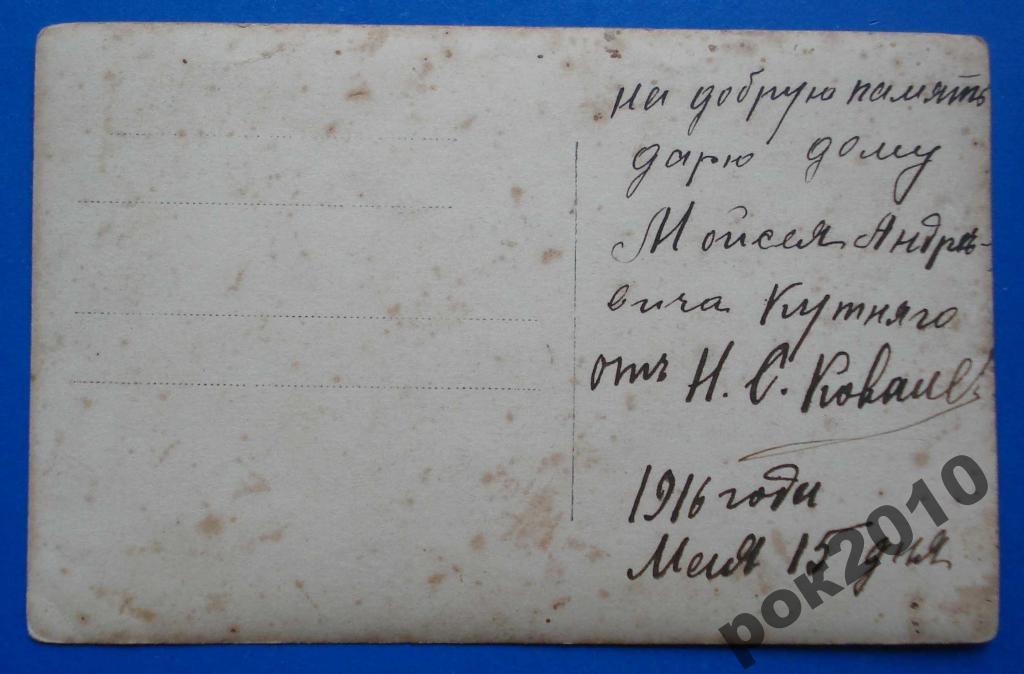 на добрую память
дарю дому
Мойсея Андре-
вича Кутняго
отъ Н. С. Ковалев
1916 года
Мая 15 дня
рок2010